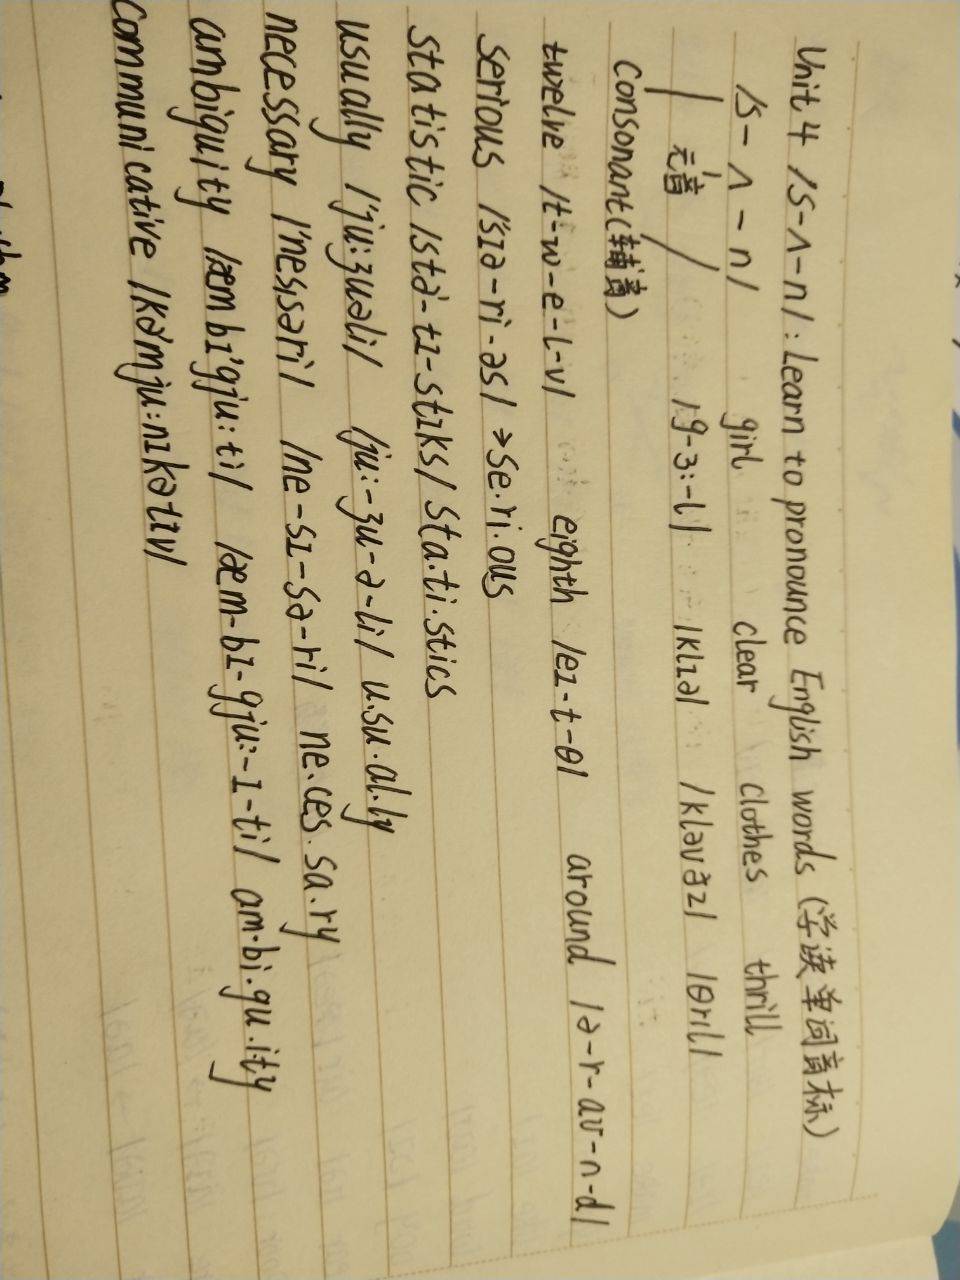 Unit 4 /s-ʌ-n/ : Learn to pronounce English words (学读单词音标)
/s-ʌ-n/ girl clear clothes thrill
元音 /g-ɜ:-l/ /klɪə/ /kləʊðz/ /θrɪl/
Consonant(辅音)
twelve /t-w-e-l-v/ eighth /eɪ-t-θ/ around /ə-r-aʊ-n-d/
serious /'sɪə-ri-əs/ → se.ri.ous
statistic /stə'-tɪ-stɪks/ sta.ti.stics
usually /'ju:ʒuəli/ /ju:-ʒu-ə-li/ u.su.al.ly
necessary /'nesɪsəri/ /ne-sɪ-sə-ri/ ne.ces.sa.ry
ambiguity /æmbɪ'gju:ti/ /æm-bɪ-gju:-ɪ-ti/ am.bi.gu.ity
communicative /kə'mju:nɪkətɪv/